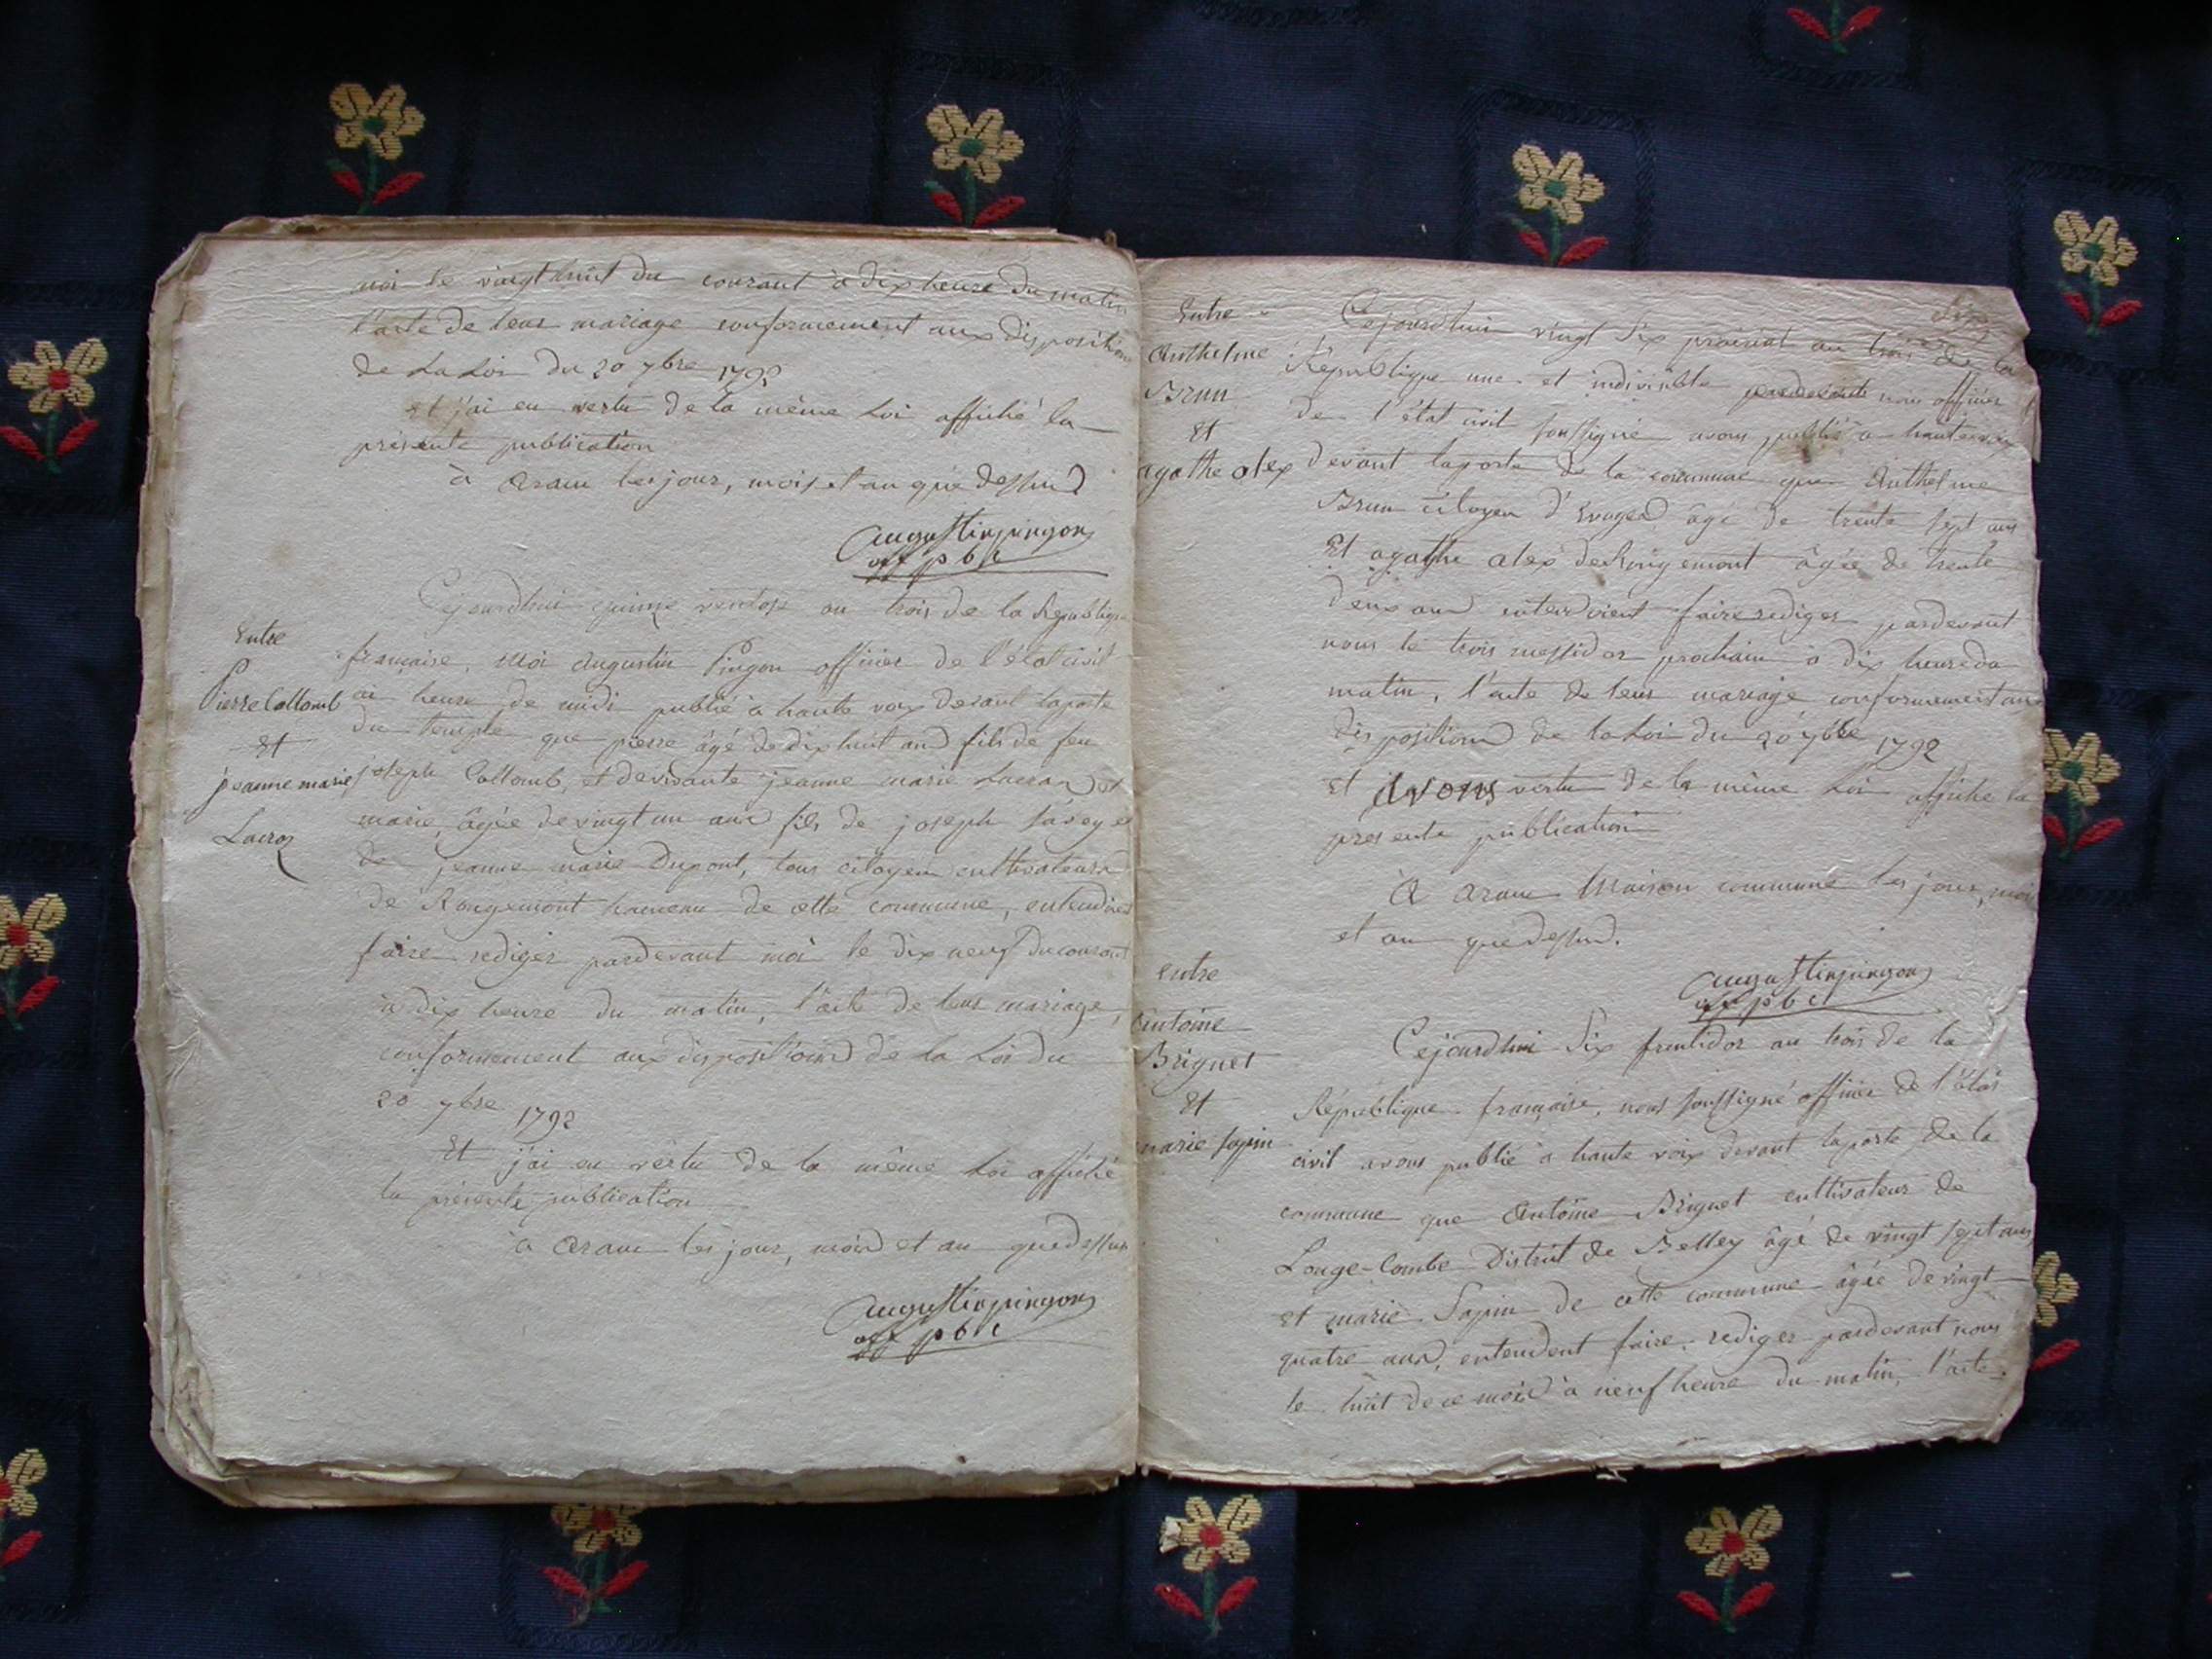 moi le vingt huit du courant à dix heure du matin
l'acte de leur mariage conformement aux disposition
de La Loi du 20 7bre 1792
et j'ai en vertu de la même Loi affiché la
présente publication
à aranc les jour, mois et an que dessus
augustin pingon
off pbc
Cejourdhui quinze ventose an trois de la Republique
Entre
française, moi augustin Pingon officier de l'état civil
Pierre Collomb
ai heure de midi publié à haute voix devant la porte
Et
du temple que pierre âgé de dix huit ans fils de feu
jeanne marie
joseph Collomb, et de vivante jeanne marie et
Lacroz
marie, âgée de vingt un ans fils de joseph Savey et
de jeanne marie Dupont, tous citoyens cultivateurs
de Rougemont hameau de cette commune, entendirent
faire rediger pardevant moi le dix neuf du courant
à dix heure du matin, l'acte de leur mariage,
conformement aux dispositions de la Loi du
20 7bre 1792
Et j'ai en vertu de la même Loi affiché
la présente publication
à aranc les jour, mois et an que dessus
augustin pingon
off pbc
Entre
Anthelme
Brun
Et
agathe alex
Cejourdhui vingt Six prairial an trois de la
République une et indivisible nous officier
de l'état civil soussigné avons publié a haute voix
devant la porte de la commune que Anthelme
Brun citoyen d'Evoges âgé de trente sept ans
Et agathe alex de Rougemont âgée de trente
deux ans faire rediger pardevant
nous le trois messidor prochain à dix heure du
matin, l'acte de leur mariage conformement aux
dispositions de la Loi du 20 7bre 1792
Et avons vertu de la même Loi affiché la
presente publication
A aranc Maison commune les jour, mois
et an que dessus.
augustin pingon
off pbc
entre
Antoine
Briguet
Et
marie Sapin
Cejourdhui Six fructidor an trois de la
République française, nous soussigné officier de l'état
civil avons publié a haute voix devant la porte de la
commune que Antoine Briguet cultivateur de
Longe-Combe District de Belley âgé de vingt sept ans
Et marie Sapin de cette commune âgée de vingt
quatre ans, entendent faire rediger pardevant nous
le huit de ce mois à neuf heure du matin, l'acte